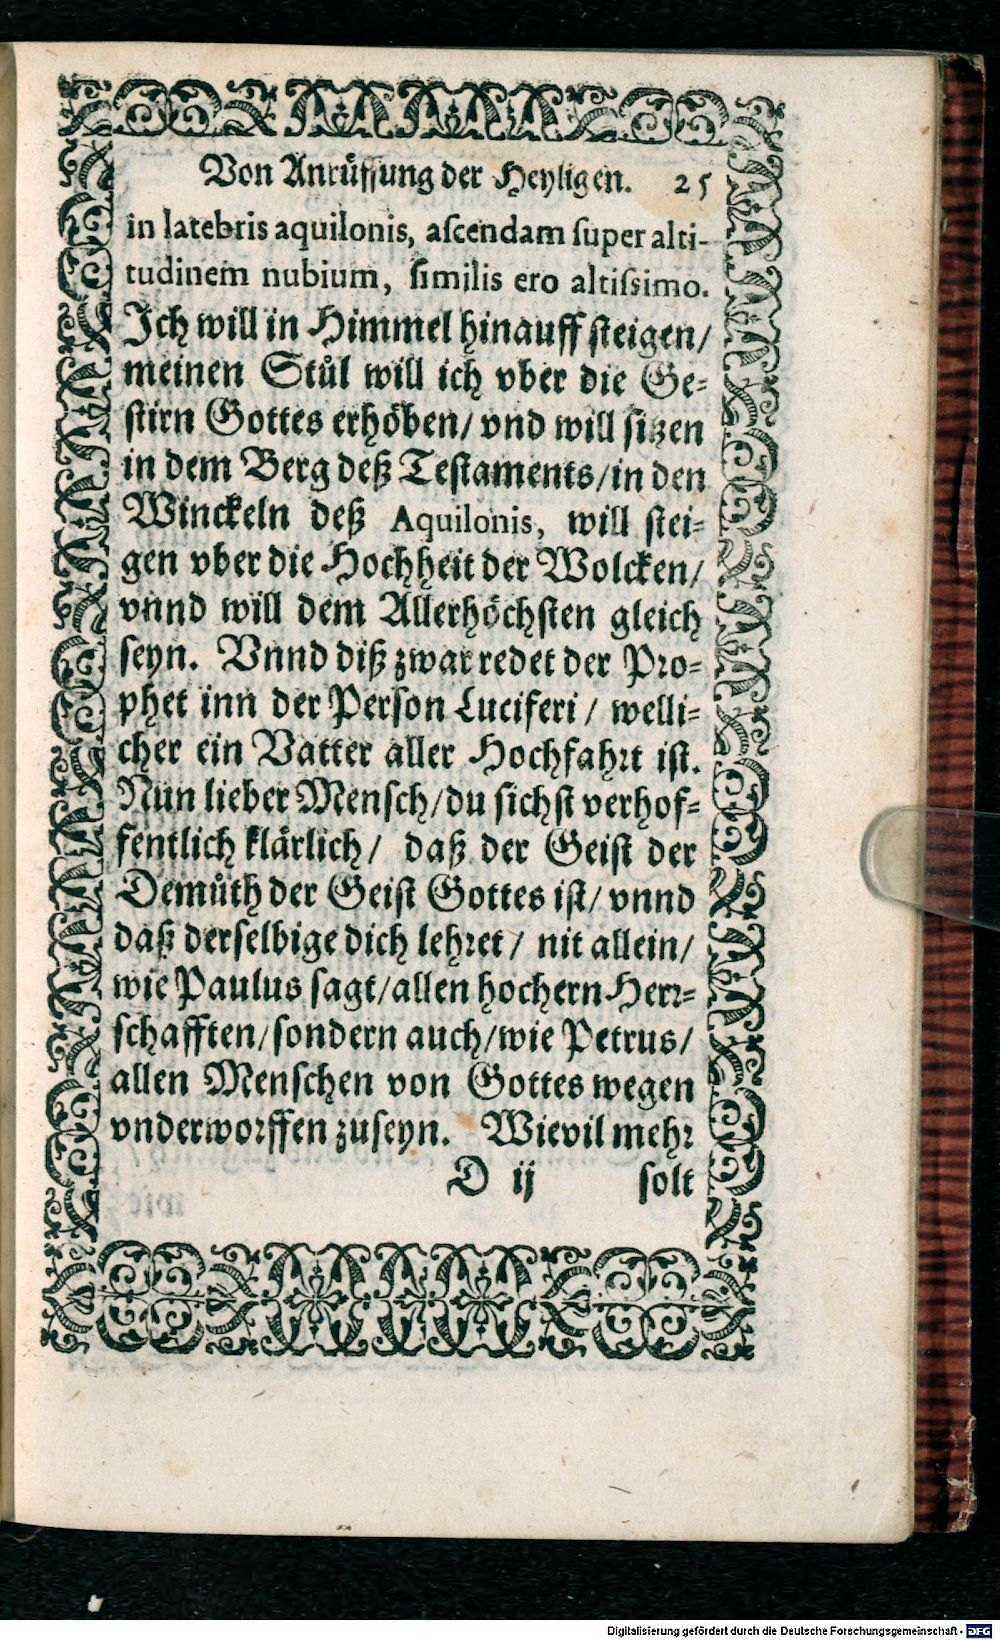 Von Anrůffung der Heyligen. 25
in latebris aquilonis, ascendam super alti-
tudinem nubium, similis ero altissimo.
Ich will in Himmel hinauff steigen/
meinen Stůl will ich vber die Ge-
stirn Gottes erhöben/ vnd will sitzen
in dem Berg deß Testaments/ in den
Winckeln deß Aquilonis, will stei-
gen vber die Hochheit der Wolcken/
vnnd will dem Allerhöchsten gleich
seyn. Vnnd diß zwar redet der Pro-
phet inn der Person Luciferi / welli-
cher ein Vatter aller Hochfahrt ist.
Nun lieber Mensch/ du sichst verhof-
fentlich klärlich/ daß der Geist der
Demůth der Geist Gottes ist/ vnnd
daß derselbige dich lehret/ nit allein/
wie Paulus sagt/ allen hochern Herr-
schafften/ sondern auch/ wie Petrus/
allen Menschen von Gottes wegen
vnderworffen zuseyn. Wievil mehr
D ij solt
Digitalisierung gefördert durch die Deutsche Forschungsgemeinschaft - DFG